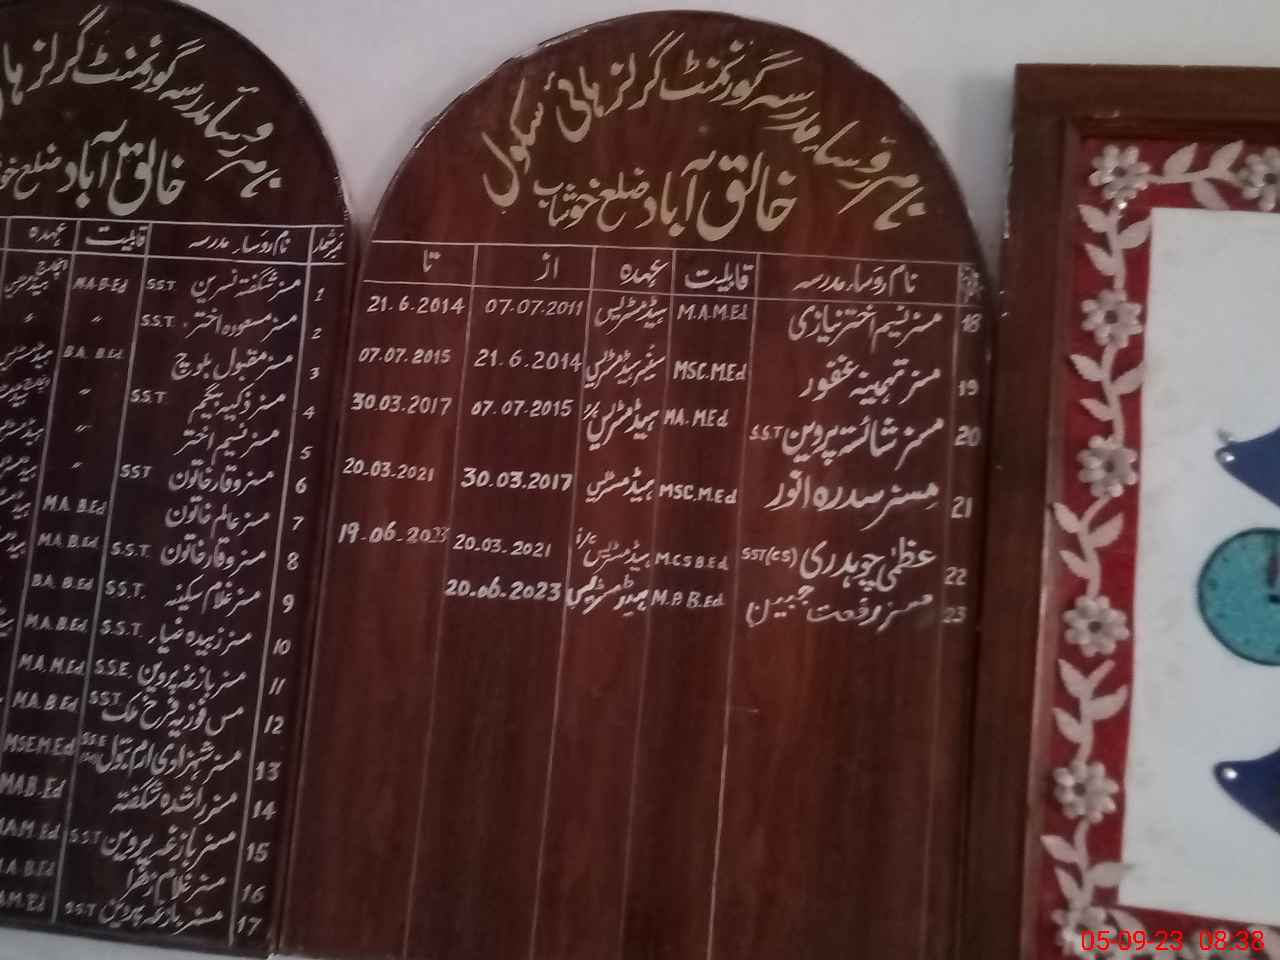 بہر روسا مدرسہ گورنمنٹ گرلز ہائی سکول
خالق آباد ضلع خوشاب
نام روسا مدرسہ قابلیت عہدہ از تا
18 مسز نسیم اختر نیازی M.A.M.Ed ہیڈمسٹریس 07.07.2011 21.6.2014
19 مسز تہمینہ غفور MSC.M.Ed سینئر ہیڈمسٹریس 21.6.2014 07.07.2015
20 مسز شائستہ پروین S.S.T MA.M.Ed ہیڈمسٹریس 07.07.2015 30.03.2017
21 مسز سدرہ انور MSC.M.Ed ہیڈمسٹریس 30.03.2017 20.03.2021
22 عظمیٰ چوہدری SST(CS) M.CS B.Ed ہیڈمسٹریس i/c 20.03.2021 19.06.2023
23 مسز رفعت جبین B.Ed ہیڈمسٹریس 20.06.2023
بہر روسا مدرسہ گورنمنٹ گرلز
خالق آباد ضلع
نمبر شمار نام روسا مدرسہ قابلیت عہدہ
1 مسز شگفتہ نسرین SST M.A.B.Ed انچارج ہیڈمسٹریس
2 مسز مسعودہ اختر S.S.T. 〃 〃
3 مسز مقبول بلوچ BA. B.Ed
4 مسز ذکیہ بیگم SST 〃
5 مسز نسیم اختر 〃
6 مسز وقار خاتون SST 〃
7 مسز عالم خاتون MA. B.Ed
8 مسز وقار خاتون S.S.T. MA.B.Ed
9 مسز غلام سکینہ S.S.T. BA. B.Ed
10 مسز زبیدہ ضیاء S.S.T. MA.B.Ed
11 مسز بازغہ پروین S.S.E. MA.M.Ed
12 مس فوزیہ فرخ ملک SST MA.B.Ed
13 مسز شہزادی ارم بتول S.S.E MSE.M.Ed
14 مسز راشدہ شگفتہ MAB.Ed
15 مسز بازغہ پروین S.S.T MA.M.Ed
16 مسز غلام زہرا .A.B.Ed
17 مسز بازغہ پروین S.S.T AM.Ed
05-09-23 08:38